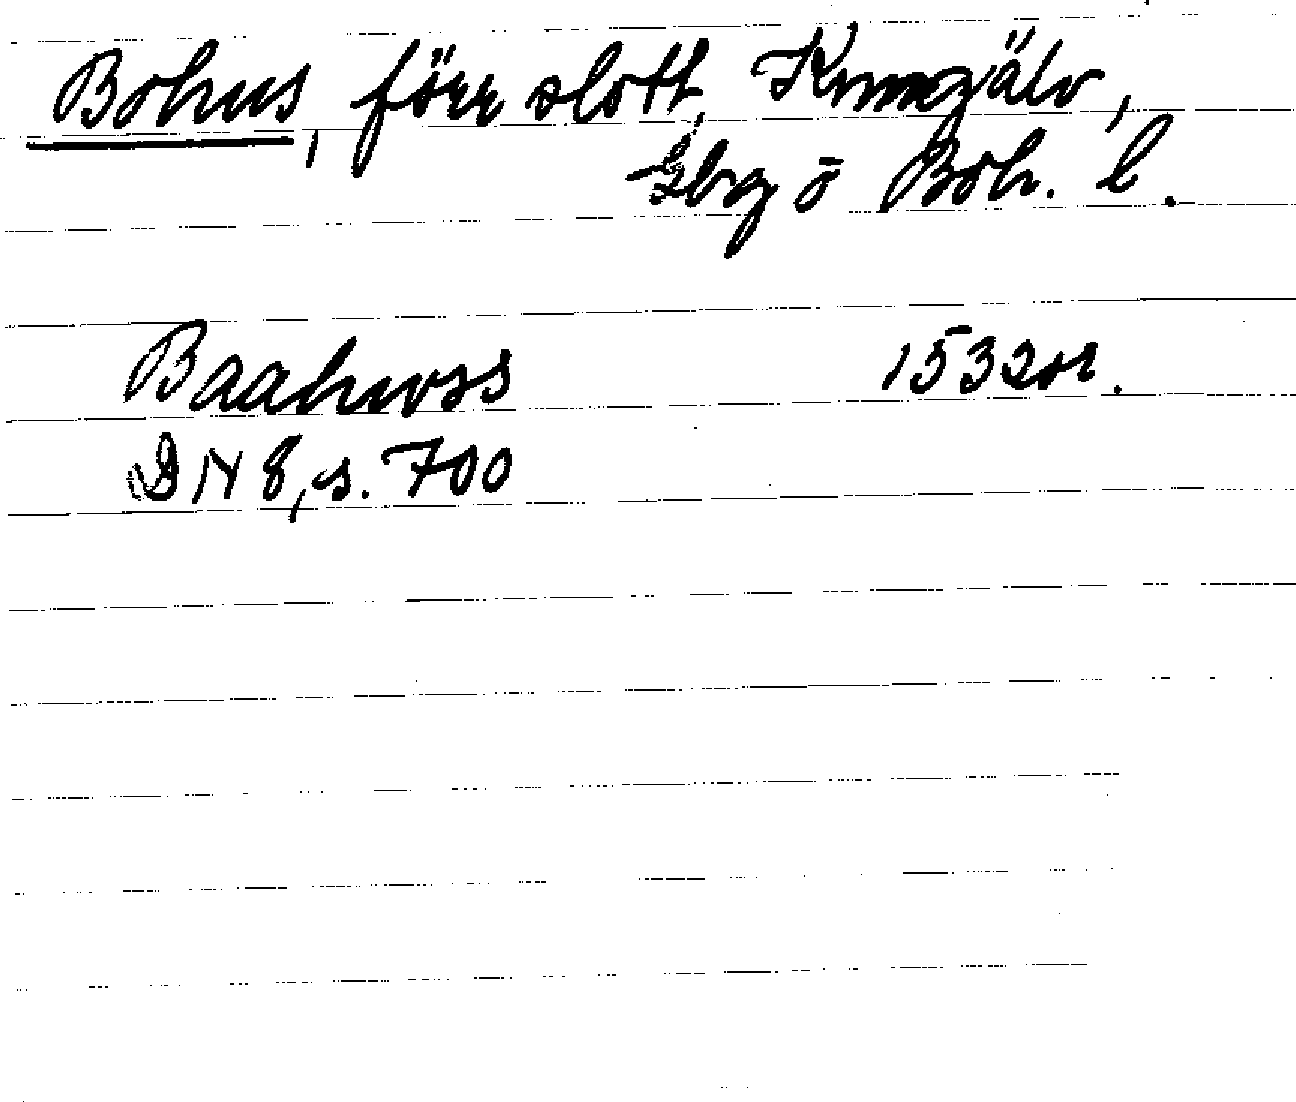 Bohus, förr slott, Kungälv,
Gbg o Boh. l.
Baahwss 1532 or.
DN 8, s. 700